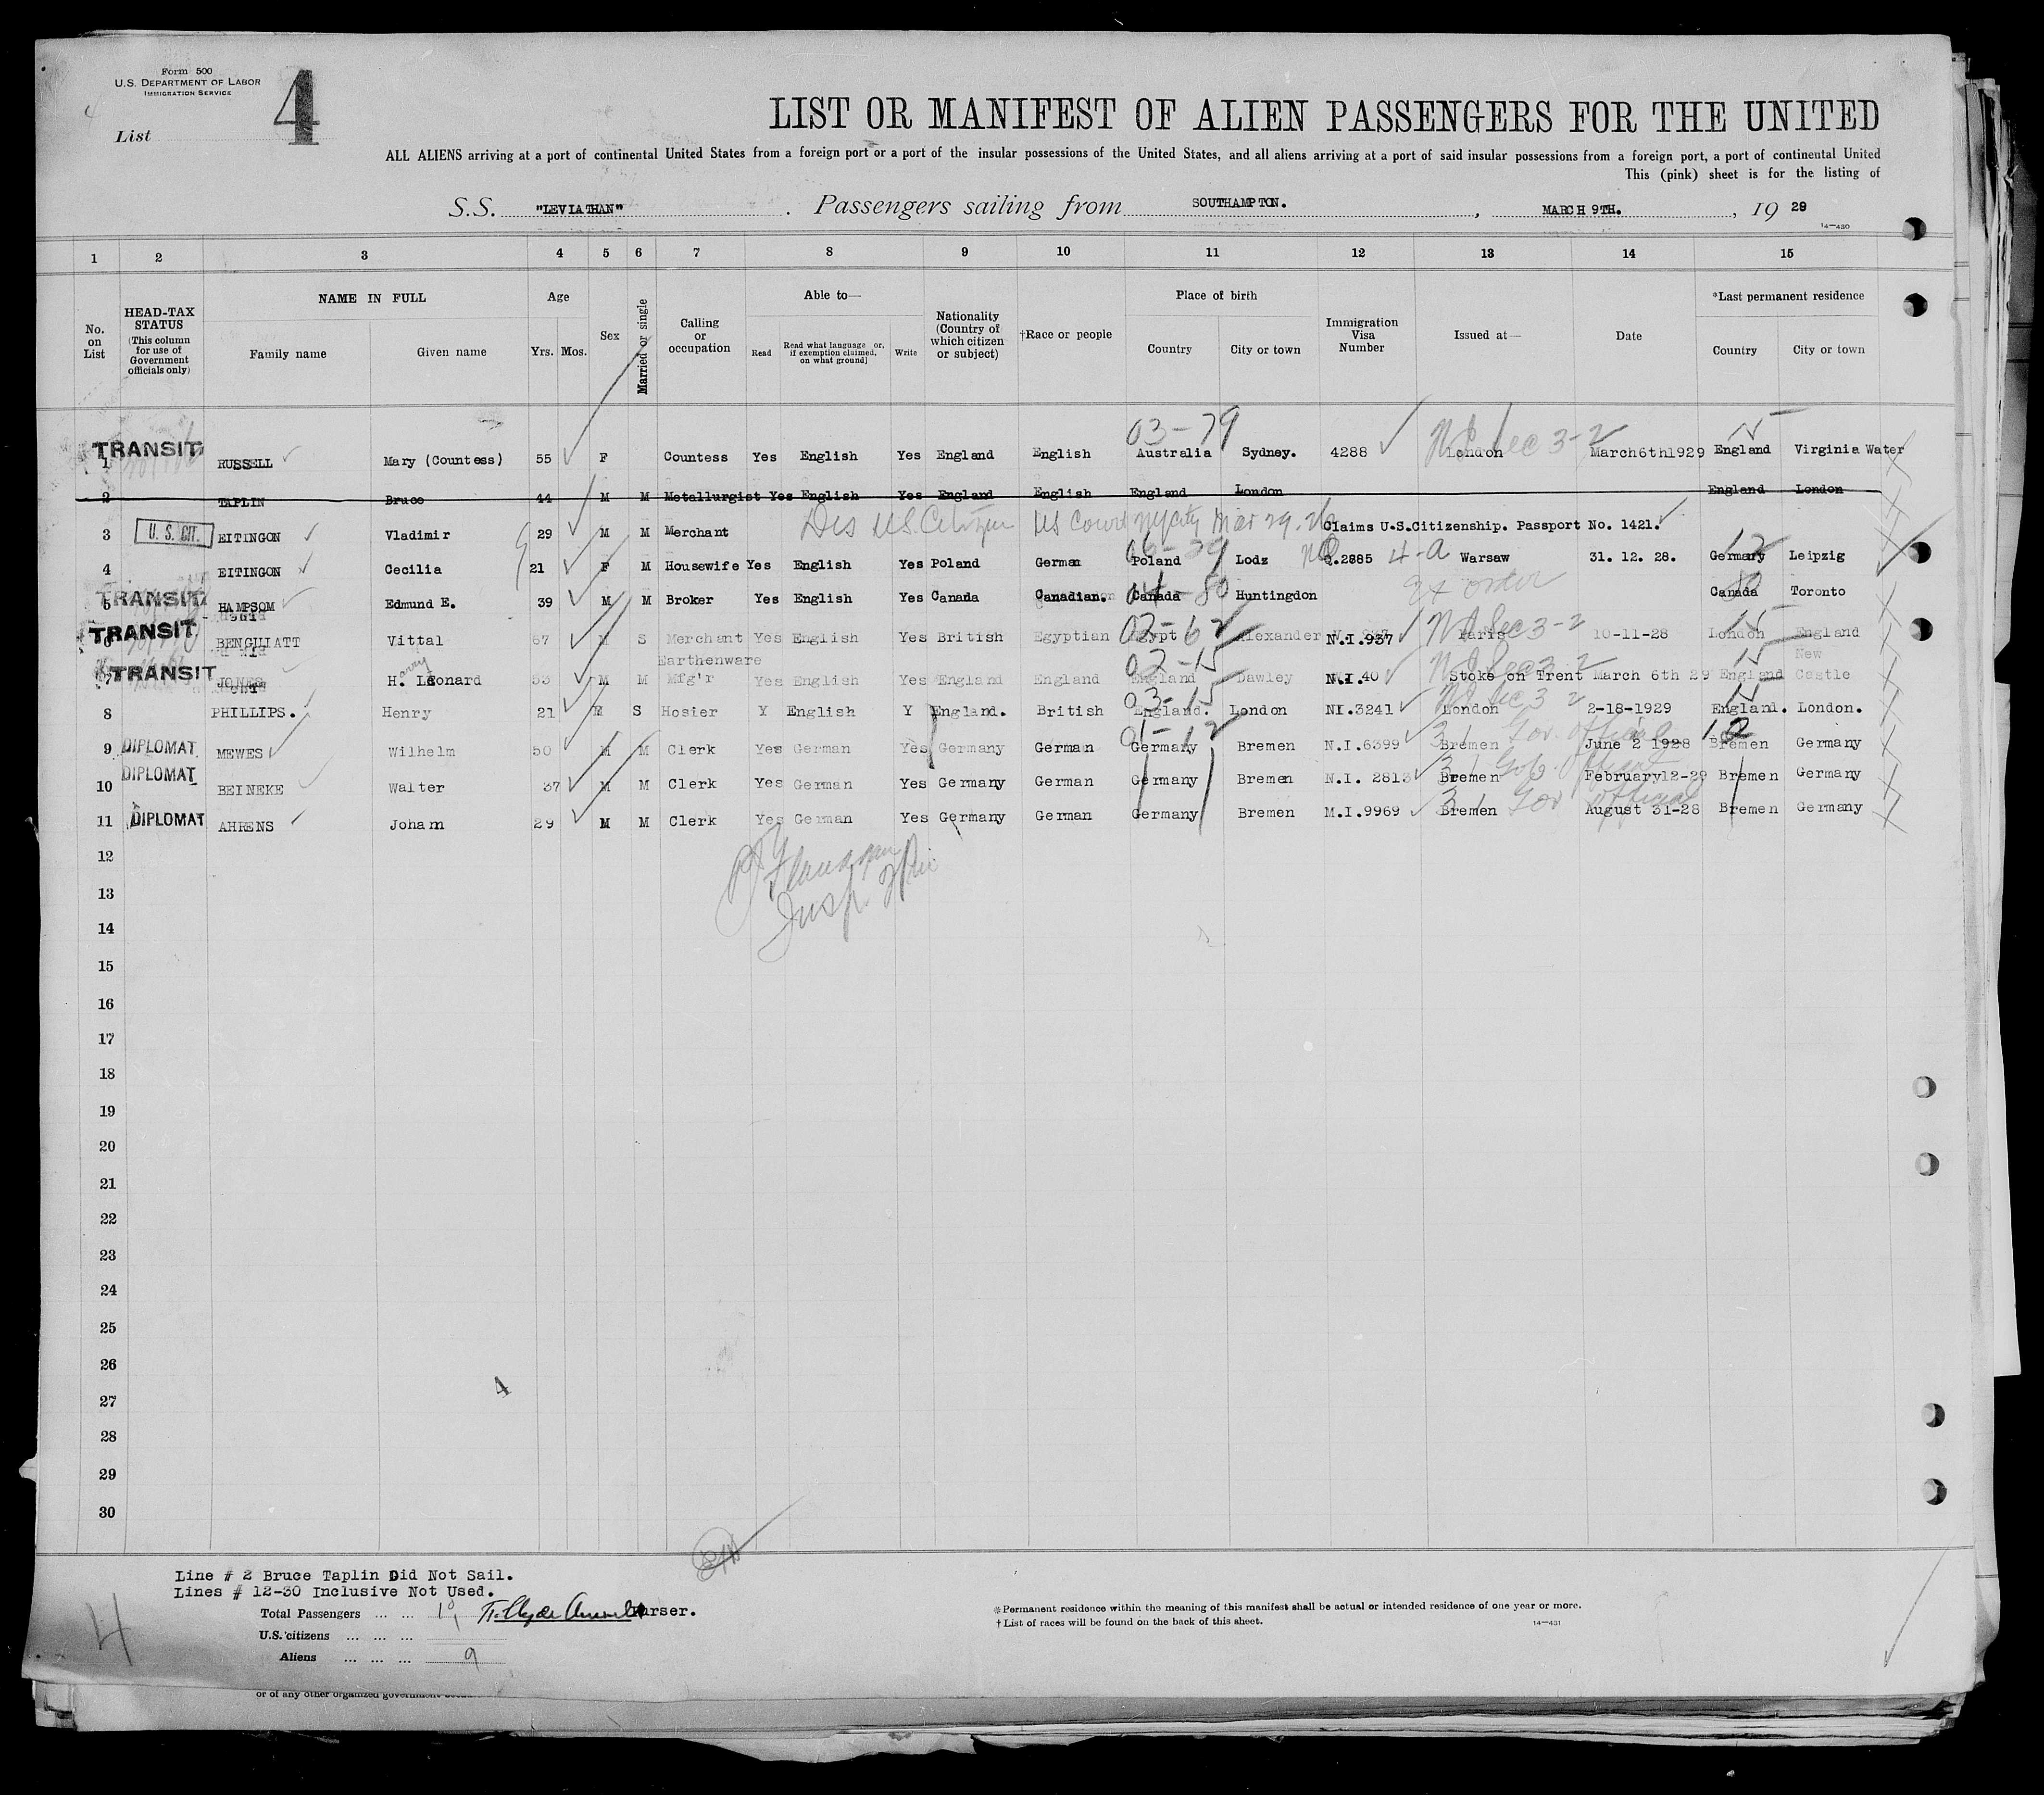 Form 500
U.S. DEPARTMENT OF LABOR
IMMIGRATION SERVICE
List 4
LIST OR MANIFEST OF ALIEN PASSENGERS FOR THE UNITED
ALL ALIENS arriving at a port of continental United States from a foreign port or a port of the insular possessions of the United States, and all aliens arriving at a port of said insular possessions from a foreign port, a port of continental United
This (pink) sheet is for the listing of
S.S. "LEVIATHAN". Passengers sailing from SOUTHAMPTON., MARCH 9TH., 19 29
14—430
1 2 3 4 5 6 7 8 9 10 11 12 13 14 15
No. on List
HEAD-TAX STATUS (This column for use of Government officials only)
NAME IN FULL Family name Given name
Age Yrs. Mos.
Sex
Married or single
Calling or occupation
Able to— Read Read what language or, if exemption claimed, on what ground) Write
Nationality (Country of which citizen or subject)
†Race or people
Place of birth Country City or town
Immigration Visa Number
Issued at—
Date
*Last permanent residence Country City or town
03-79 15
TRANSIT 1 RUSSELL Mary (Countess) 55 F Countess Yes English Yes England English Australia Sydney. 4288 London March6th1929 England Virginia Water
2 TAPLIN Bruce 44 M M Metallurgist Yes English Yes England English England London England London
3 U.S. CIT. EITINGON Vladimir 29 M M Merchant Claims U.S.Citizenship. Passport No. 1421.
4 EITINGON Cecilia 21 F M Housewife Yes English Yes Poland German Poland Lodz Q.2885 4-a Warsaw 31. 12. 28. Germany Leipzig
TRANSIT 5 HAMPSOM Edmund E. 39 M M Broker Yes English Yes Canada Canadian. Canada Huntingdon Canada Toronto
TRANSIT 6 BENGUIATT Vittal 67 M S Merchant Yes English Yes British Egyptian Egypt Alexander N.I.937 Paris 10-11-28 London England
TRANSIT 7 JONES H. Leonard 53 M M Earthenware Mfg'r Yes English Yes England England England Dawley N.I.40 Stoke on Trent March 6th 29 England New Castle
8 PHILLIPS. Henry 21 M S Hosier Y English Y England. British England. London NI.3241 London 2-18-1929 England. London.
9 DIPLOMAT MEWES Wilhelm 50 M M Clerk Yes German Yes Germany German Germany Bremen N.I.6399 Bremen Gov. official June 2 1928 Bremen Germany
10 DIPLOMAT BEINEKE Walter 37 M M Clerk Yes German Yes Germany German Germany Bremen N.I. 2813 Bremen February12-29 Bremen Germany
11 DIPLOMAT AHRENS Joham 29 M M Clerk Yes German Yes Germany German Germany Bremen M.I.9969 Bremen Gov official August 31-28 Bremen Germany
12
13
14
15
16
17
18
19
20
21
22
23
24
25
26
27
4
28
29
30
Line # 2 Bruce Taplin Did Not Sail.
Lines # 12-30 Inclusive Not Used.
Total Passengers ... ... 10
U.S. citizens ... ... ... 1
Aliens ... ... ... 9
4
*Permanent residence within the meaning of this manifest shall be actual or intended residence of one year or more.
†List of races will be found on the back of this sheet.
14—431
or of any other organized government